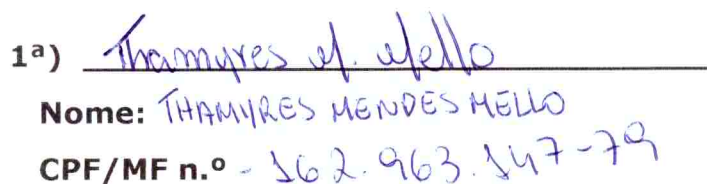 1ª) Thamyres M. Mello
Nome: THAMYRES MENDES MELLO
CPF/MF n.º - 162.963.147-79